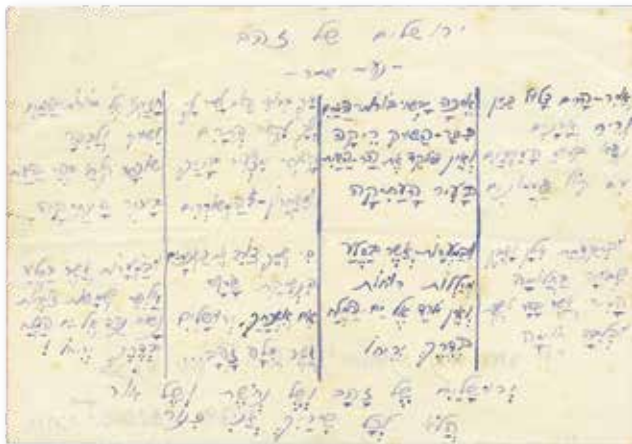 ירושלים של זהב
-נעמי שמר-
אויר-הרים צלול כיין
וריח ארנים
נשא ברוח הערבים
עם קול פעמונים
ובתרדמת אילן ואבן
שבויה בחלומה
העיר אשר בדד
ובלבה חומה
איכה יבשו בורות-המים
כיכר-השוק ריקה
ואין פוקד את הר-הבית
בעיר העתיקה
ובמערות אשר בסלע
מיללות רוחות
ואין יורד אל ים המלח
בדרך יריחו
אך בבואי היום לשיר לך
ולך לקשור כתרים
קטנתי מצעיר בניך
ומאחרון-המשוררים
כי שמך צורב את השפתים
כנשיקת שרף
אם אשכחך ירושלים
אשר כולה זהב
חזרנו אל בורות-המים
לשוק ולכיכר
שופר קורא בהר הבית
בעיר העתיקה
ובמערות אשר בסלע
אלפי שמשות זורחות
נשוב נרד אל ים המלח
בדרך יריחו!
ירושלים של זהב ושל נחשת ושל אור
הלא לכל שיריך אני כנור